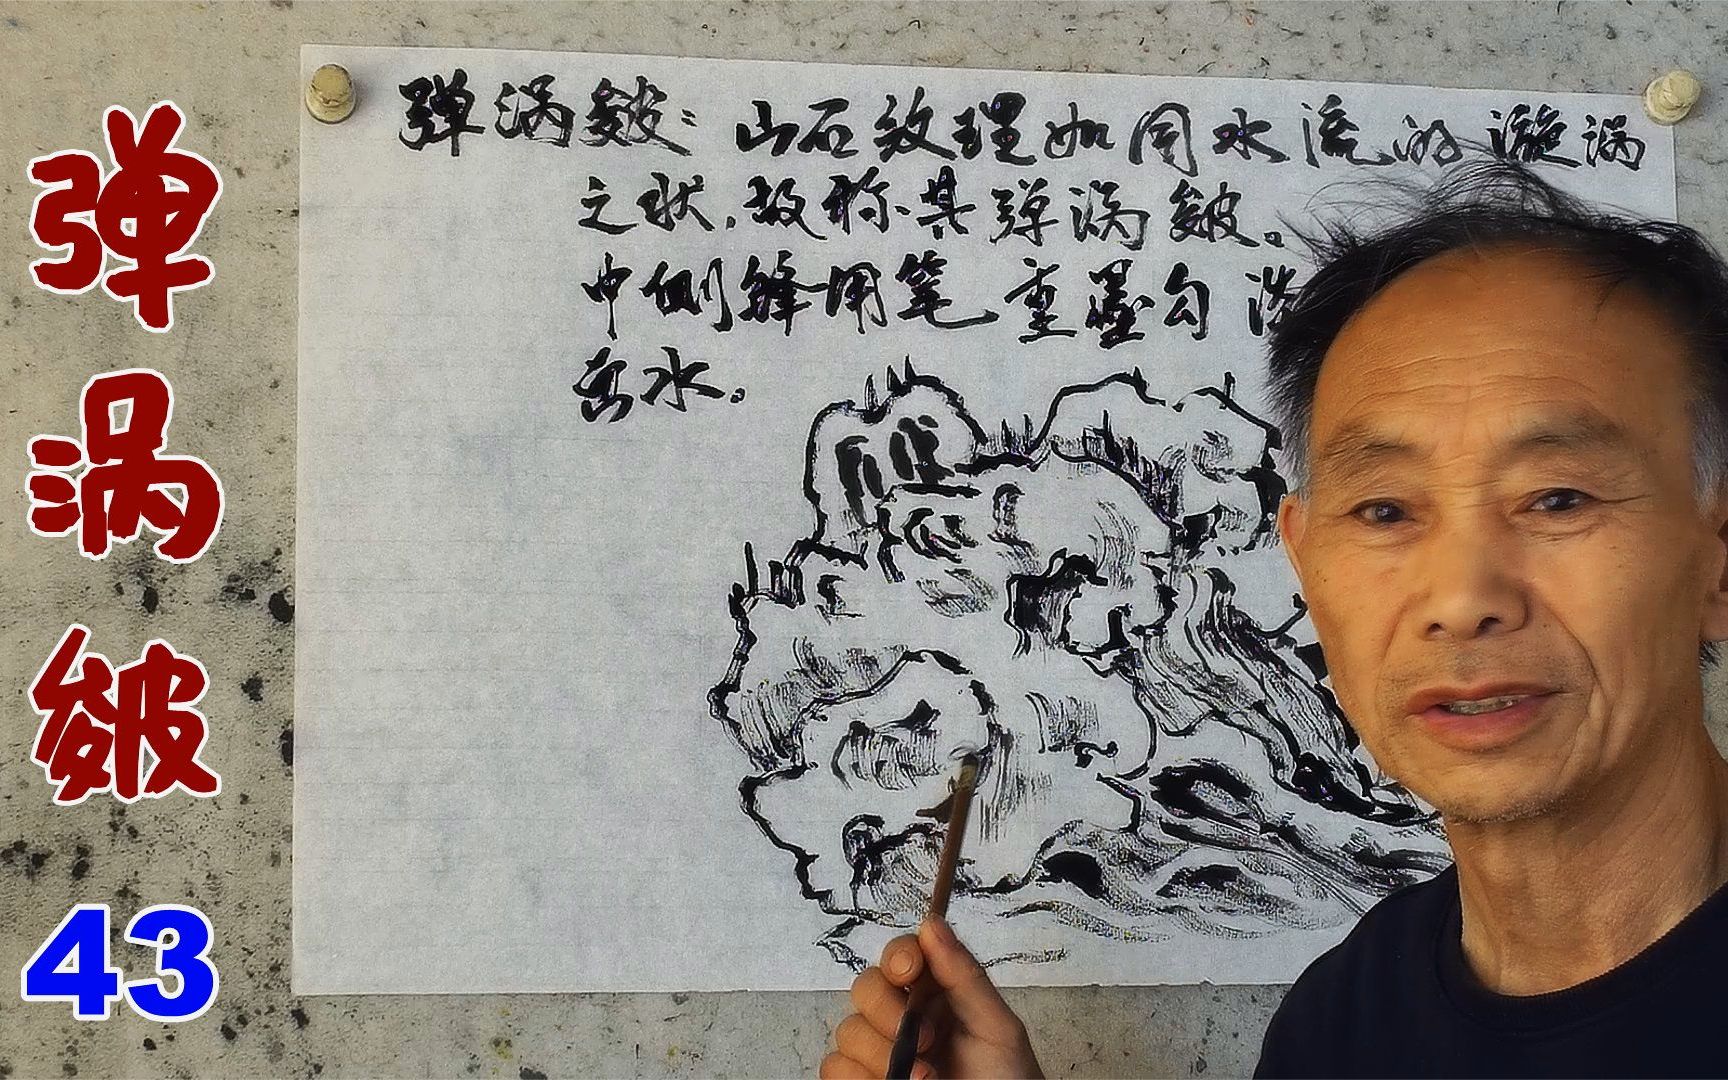 弹涡皴
43
弹涡皴：山石纹理如同水流的漩涡
之状，故称其弹涡皴。
中侧锋用笔重墨勾
出水。